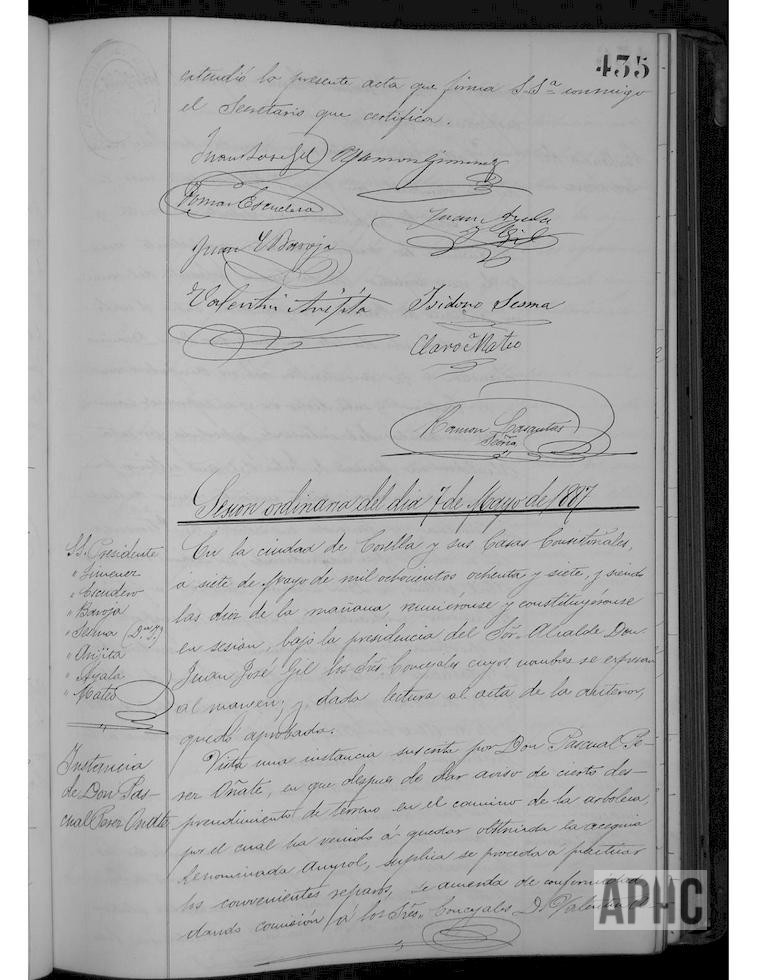 435
extendió la presente acta que firma S.Sª conmigo
el Secretario que certifica.
Juan José Gil Ramon Gimenez
Tomas Escudero
Juan Ayala
y Gil
Juan C. Baroja
Valentin Arijita Isidoro Sesma
Claro Mateo
Ramon
Srio
Sesion ordinaria del dia 7 de Mayo de 1887
SS. Presidente
" Jimenez
" Escudero
" Baroja
" Sesma (Dn. I.)
" Arijita
" Ayala
" Mateo
En la ciudad de Corella y sus Casas Consistoriales,
á siete de Mayo de mil ochocientos ochenta y siete, y siendo
las diez de la mañana, reuniéronse y constituyéronse
en sesion, bajo la presidencia del Sor. Alcalde Don
Juan José Gil los Sres. Concejales cuyos nombres se expresan
al margen; y dada lectura al acta de la anterior,
quedó aprobada.
Instancia
de Don Pas-
cual Perez Oñate
Vista una instancia suscrita por Don Pascual Pe-
rez Oñate, en que despues de dar aviso de cierto des-
prendimiento de terreno en el camino de la arboleda,
por el cual ha venido á quedar obstruida la acequia
denominada suplica se proceda á practicar
los convenientes reparos, se acuerda de conformidad
dando comisión á los Sres. Concejales D. Valentin A-
APNC